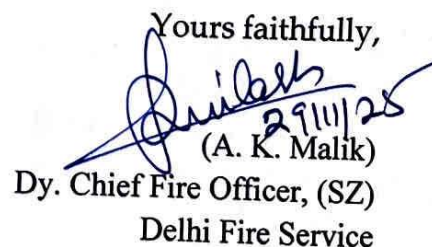 Yours faithfully,
29/11/25
(A. K. Malik)
Dy. Chief Fire Officer, (SZ)
Delhi Fire Service